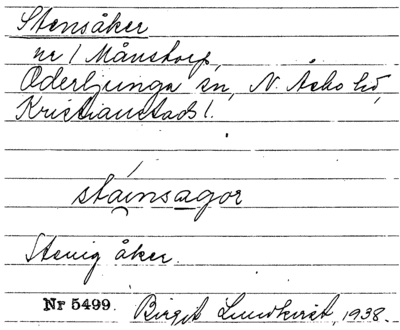 Stensåker
nr 1 Månstorp,
Oderljunga sn, N. Åsbo hd,
Kristianstads l.
stáinsagor
Stenig åker.
Nr 5499. Birgit Lundkvist, 1938.